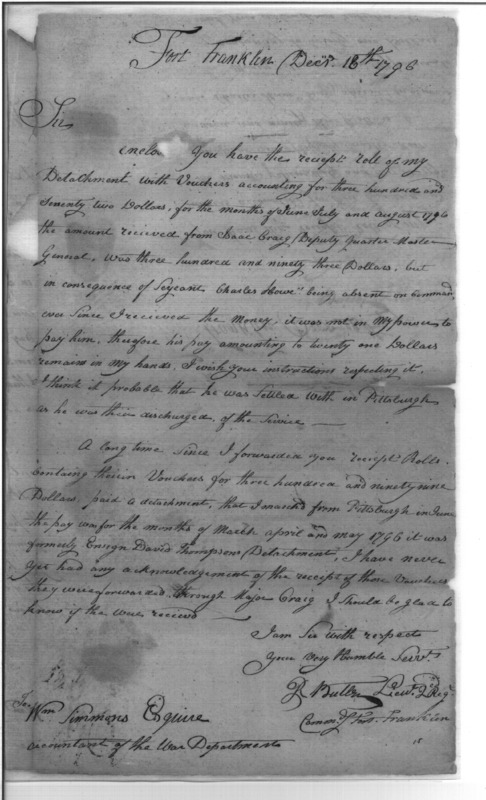 Fort Franklin Decr. 18th 1796
Sir
Enclo You have the receipt role of my
Detachment with Vouchers accounting for three hundred and
Seventy two Dollars, for the months of June July and August 1796
the amount recieved from Isaac Craig Deputy quarter Master
General, was three hundred and ninety three Dollars, but
in consequence of Serjeant Charles Howe being absent on Command
ever Since I recieved the Money, it was not in My power to
pay him, therefore his pay amounting to twenty one Dollars
remains in My hands, I wish your instructions respecting it,
I think it probable that he was Settled with in Pittsburgh
as he was their discharged of the Service —
A long time Since I forwarded you receipt Rolls
containg therein Vouchers for three hundred and ninety nine
Dollars, paid a detachment, that I march'd from Pittsburgh in June
the pay was for the months of March april and may 1796 it was
formerly Ensign David Thompsons Detachment, I have never
yet had any acknowledgement of the receipt of those Vouchers
they were forwarded through Major Craig I Should be glad to
know if the ware recieved —
I am Sir with respect
Your very Humble Servt.
Butler Lieut. Regt
Commg Fort Franklin
To
Wm Simmons Esquire
accountant of the War Department